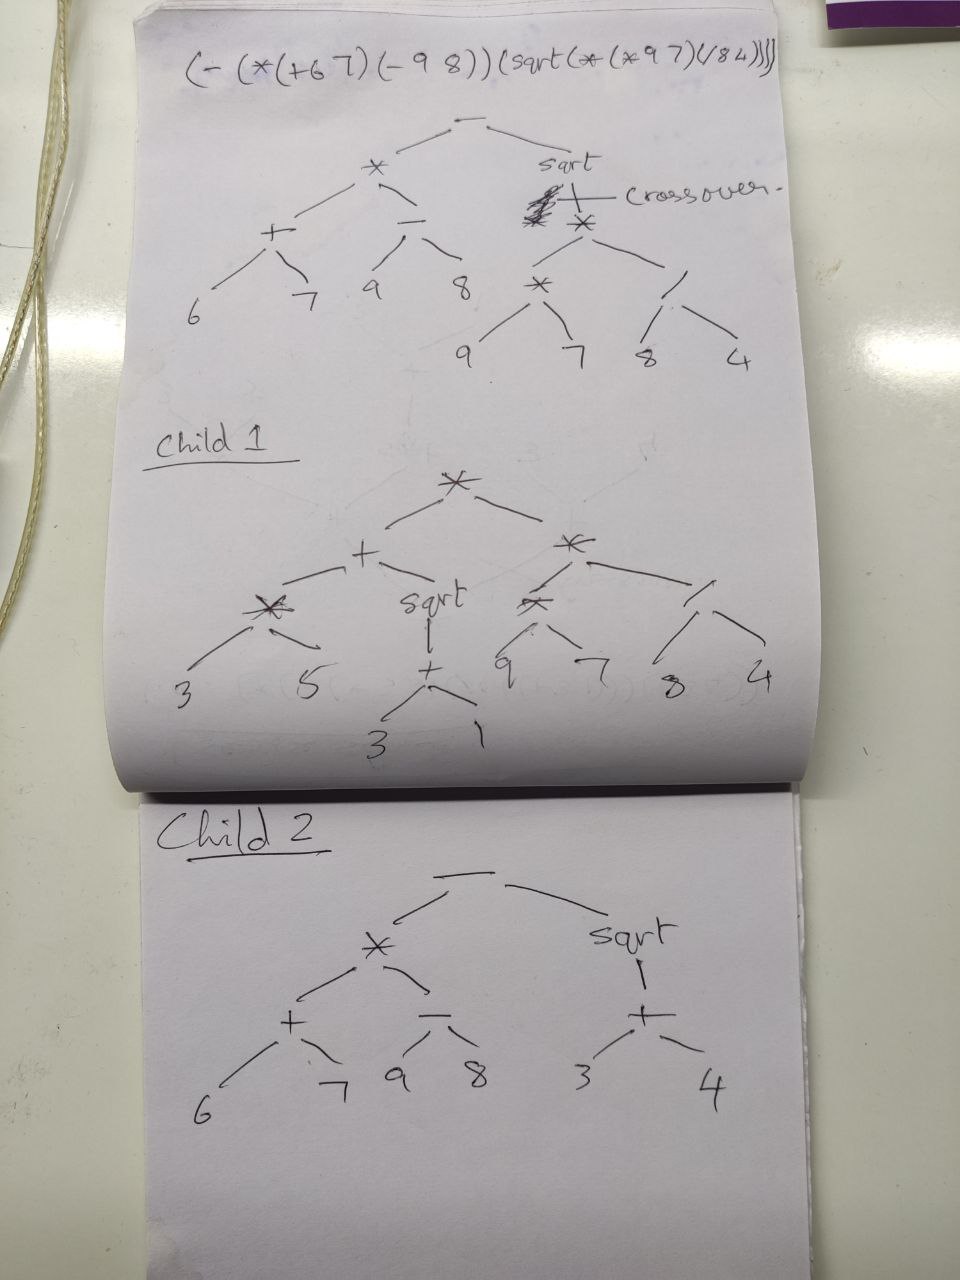 (- (*(+6 7)(-9 8))(sqrt(*(*97)(/84))))
-
* sqrt
crossover.
+ - *
6 7 9 8 * /
9 7 8 4
Child 1
*
+ *
* sqrt * /
3 5 + 9 7 8 4
3 1
Child 2
-
* sqrt
+ - +
6 7 9 8 3 4